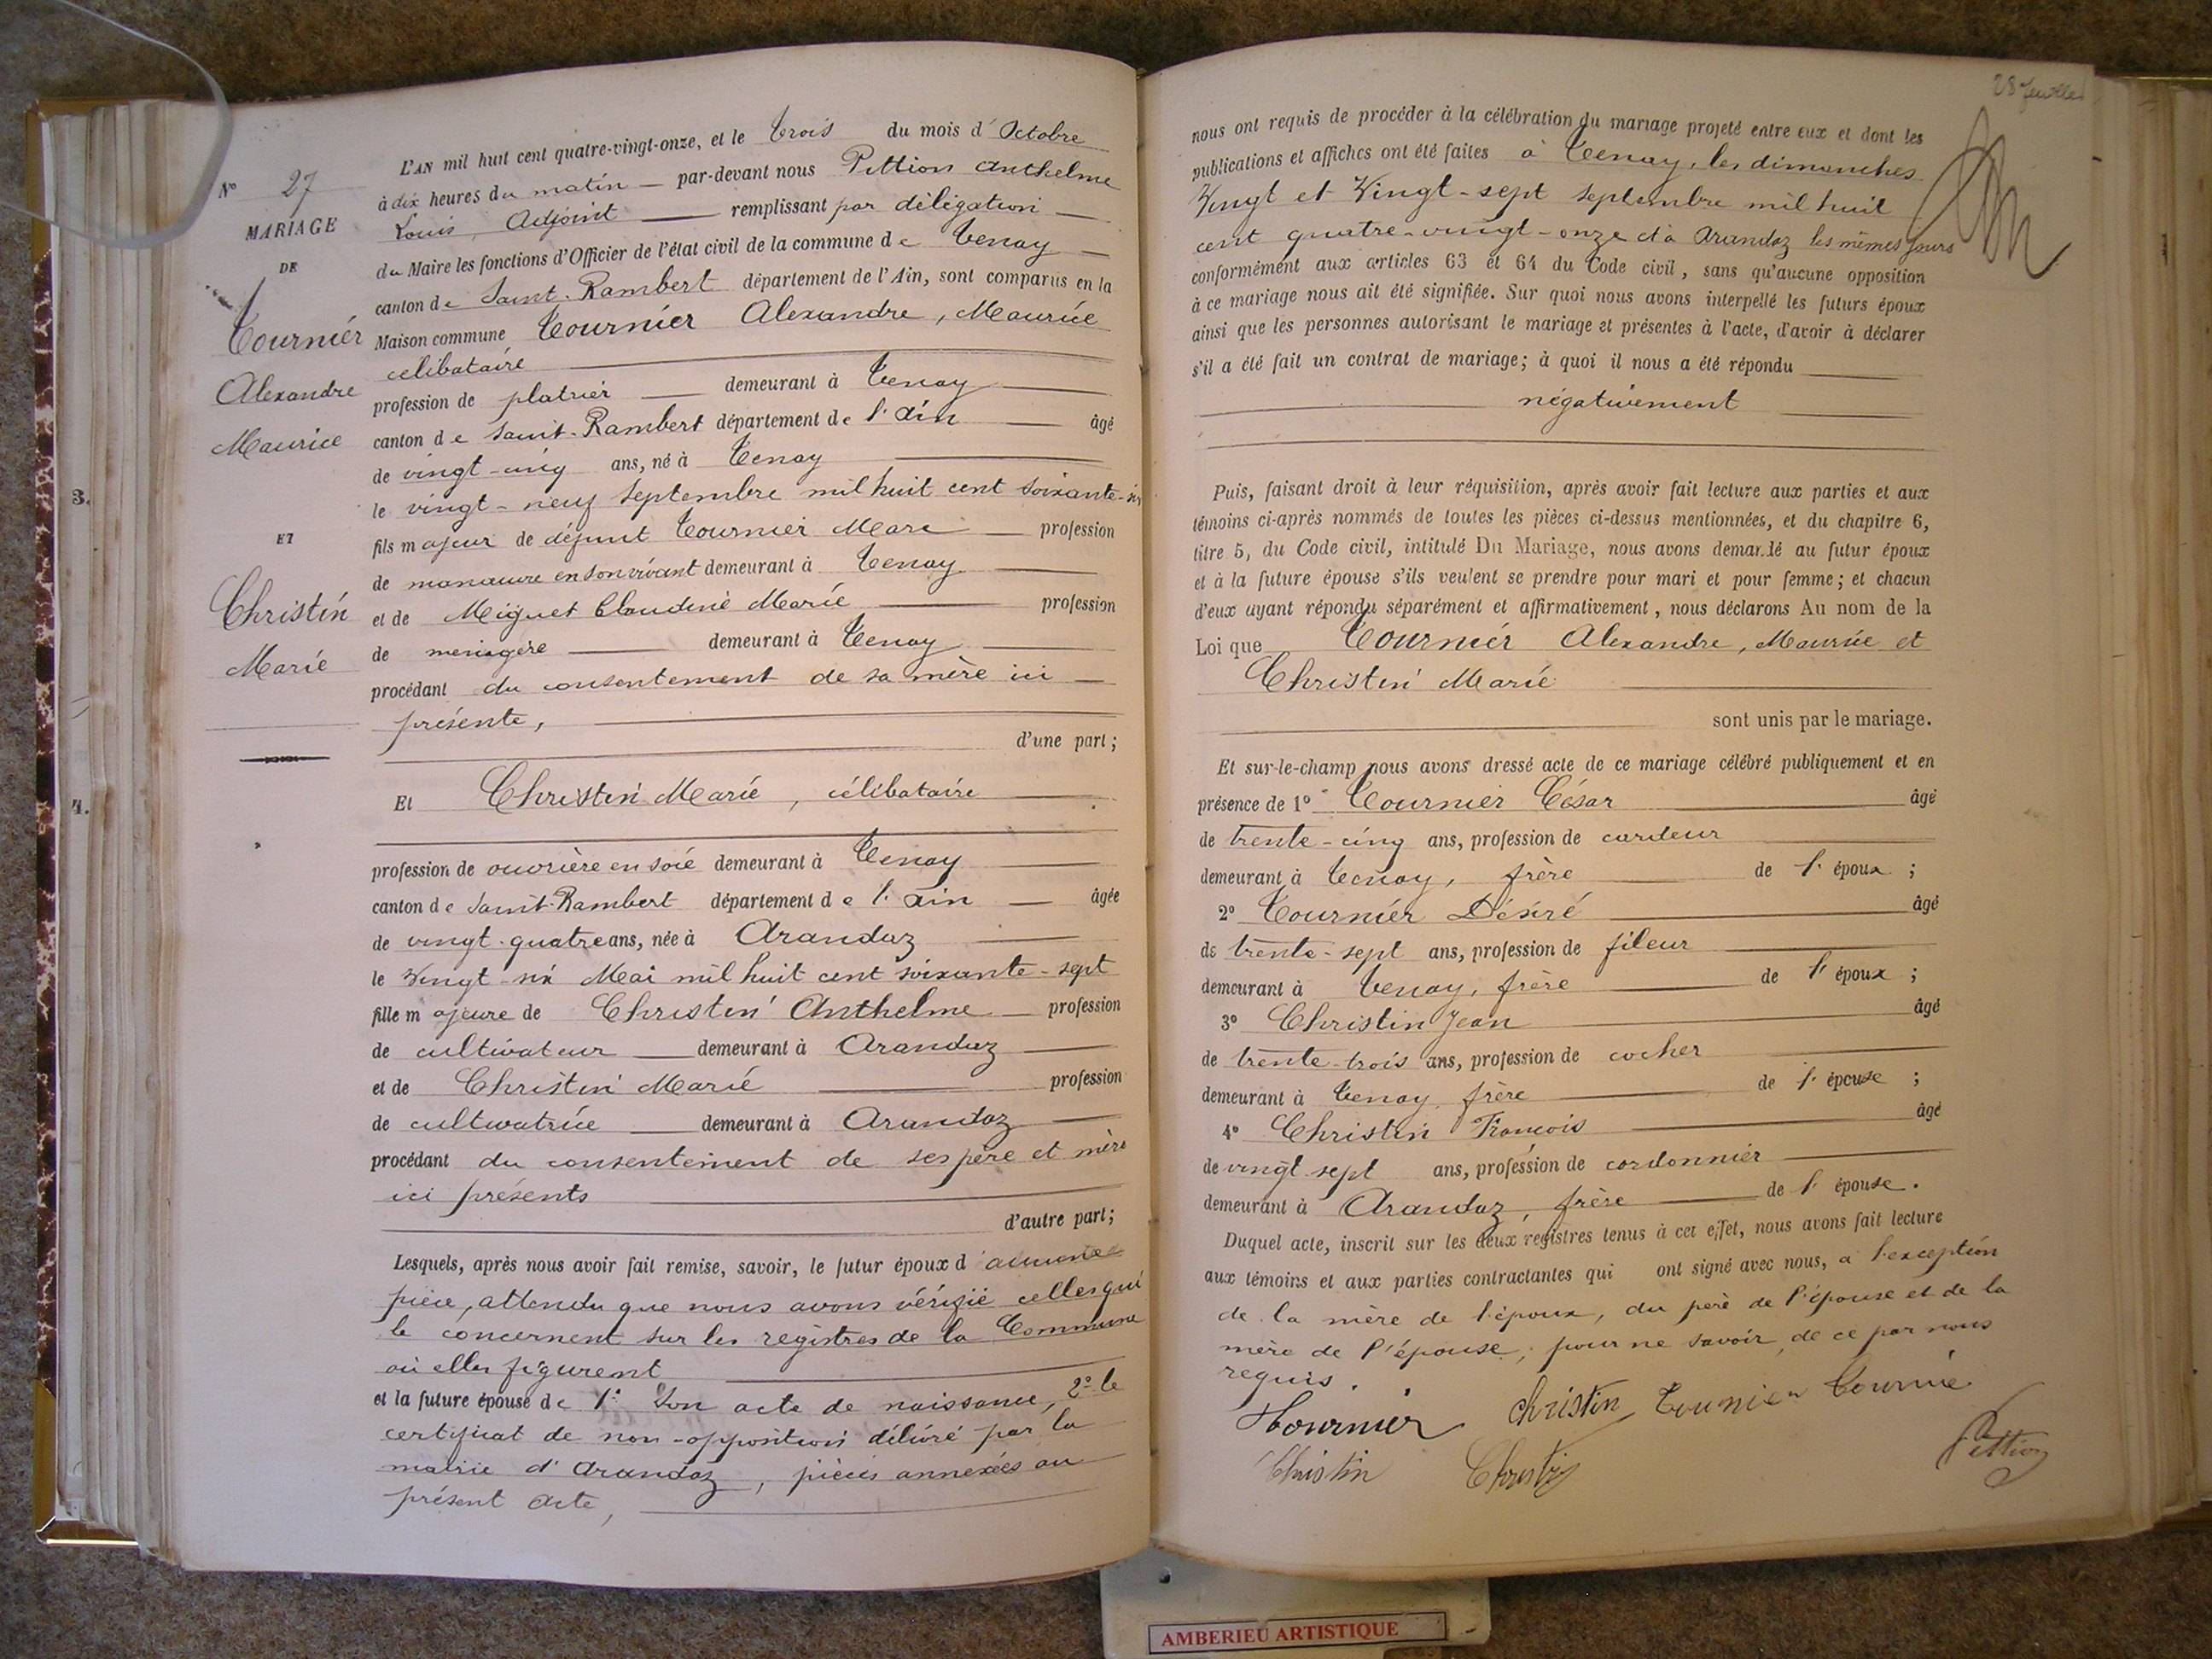 N° 27
MARIAGE
DE
Tournier
Alexandre
Maurice
ET
Christin
Marie
3.
4.
L'AN mil huit cent quatre-vingt-onze, et le trois du mois d'Octobre
à dix heures du matin — par-devant nous Pittion Anthelme
Louis, Adjoint — remplissant par délégation —
du Maire les fonctions d'Officier de l'état civil de la commune de Tenay —
canton de Saint-Rambert département de l'Ain, sont comparus en la
Maison commune Tournier Alexandre, Maurice
célibataire
profession de platrier — demeurant à Tenay —
canton de Saint-Rambert département de l'Ain — âgé
de vingt-cinq ans, né à Tenay —
le vingt-neuf Septembre mil huit cent soixante-six
fils majeur de défunt Tournier Marc — profession
de manœuvre en son vivant demeurant à Tenay —
et de Miguet Claudine Marie — profession
de ménagère — demeurant à Tenay —
procédant du consentement de sa mère ici —
présente, —
d'une part;
Et Christin Marie, célibataire —
profession de ouvrière en soie demeurant à Tenay —
canton de Saint-Rambert département de l'Ain — âgée
de vingt-quatre ans, née à Arandaz —
le Vingt-six Mai mil huit cent soixante-sept
fille majeure de Christin Anthelme — profession
de cultivateur — demeurant à Arandaz —
et de Christin Marie — profession
de cultivatrice — demeurant à Arandaz —
procédant du consentement de ses père et mère
ici présents —
d'autre part;
Lesquels, après nous avoir fait remise, savoir, le futur époux d'aucune
pièce, attendu que nous avons vérifié celles qui
le concernent sur les registres de la Commune
où elles figurent —
et la future épouse de 1° Son acte de naissance, 2° le
certificat de non-opposition délivré par la
mairie d'Arandaz, pièces annexées au
présent acte, —
28 feuillet
nous ont requis de procéder à la célébration du mariage projeté entre eux et dont les
publications et affiches ont été faites à Tenay, les dimanches
Vingt et Vingt-sept septembre mil huit
cent quatre-vingt-onze et à Arandaz les mêmes jours
conformément aux articles 63 et 64 du Code civil, sans qu'aucune opposition
à ce mariage nous ait été signifiée. Sur quoi nous avons interpellé les futurs époux
ainsi que les personnes autorisant le mariage et présentes à l'acte, d'avoir à déclarer
s'il a été fait un contrat de mariage; à quoi il nous a été répondu —
négativement
Puis, faisant droit à leur réquisition, après avoir fait lecture aux parties et aux
témoins ci-après nommés de toutes les pièces ci-dessus mentionnées, et du chapitre 6,
titre 5, du Code civil, intitulé Du Mariage, nous avons demandé au futur époux
et à la future épouse s'ils veulent se prendre pour mari et pour femme; et chacun
d'eux ayant répondu séparément et affirmativement, nous déclarons Au nom de la
Loi que Tournier Alexandre, Maurice et
Christin Marie —
sont unis par le mariage.
Et sur-le-champ nous avons dressé acte de ce mariage célébré publiquement et en
présence de 1° Tournier César — âgé
de trente-cinq ans, profession de cardeur —
demeurant à Tenay, frère — de l'époux ;
2° Tournier Désiré — âgé
de trente-sept ans, profession de fileur —
demeurant à Tenay, frère — de l'époux ;
3° Christin Jean — âgé
de trente-trois ans, profession de cocher —
demeurant à Tenay, frère — de l'épouse ;
4° Christin François — âgé
de vingt sept ans, profession de cordonnier —
demeurant à Arandaz, frère — de l'épouse.
Duquel acte, inscrit sur les deux registres tenus à cet effet, nous avons fait lecture
aux témoins et aux parties contractantes qui ont signé avec nous, à l'exception
de la mère de l'époux, du père de l'épouse et de la
mère de l'épouse, pour ne savoir, de ce par nous
requis.
Tournier Christin Tournier Tournié
Christin Christin Pittion
AMBERIEU ARTISTIQUE